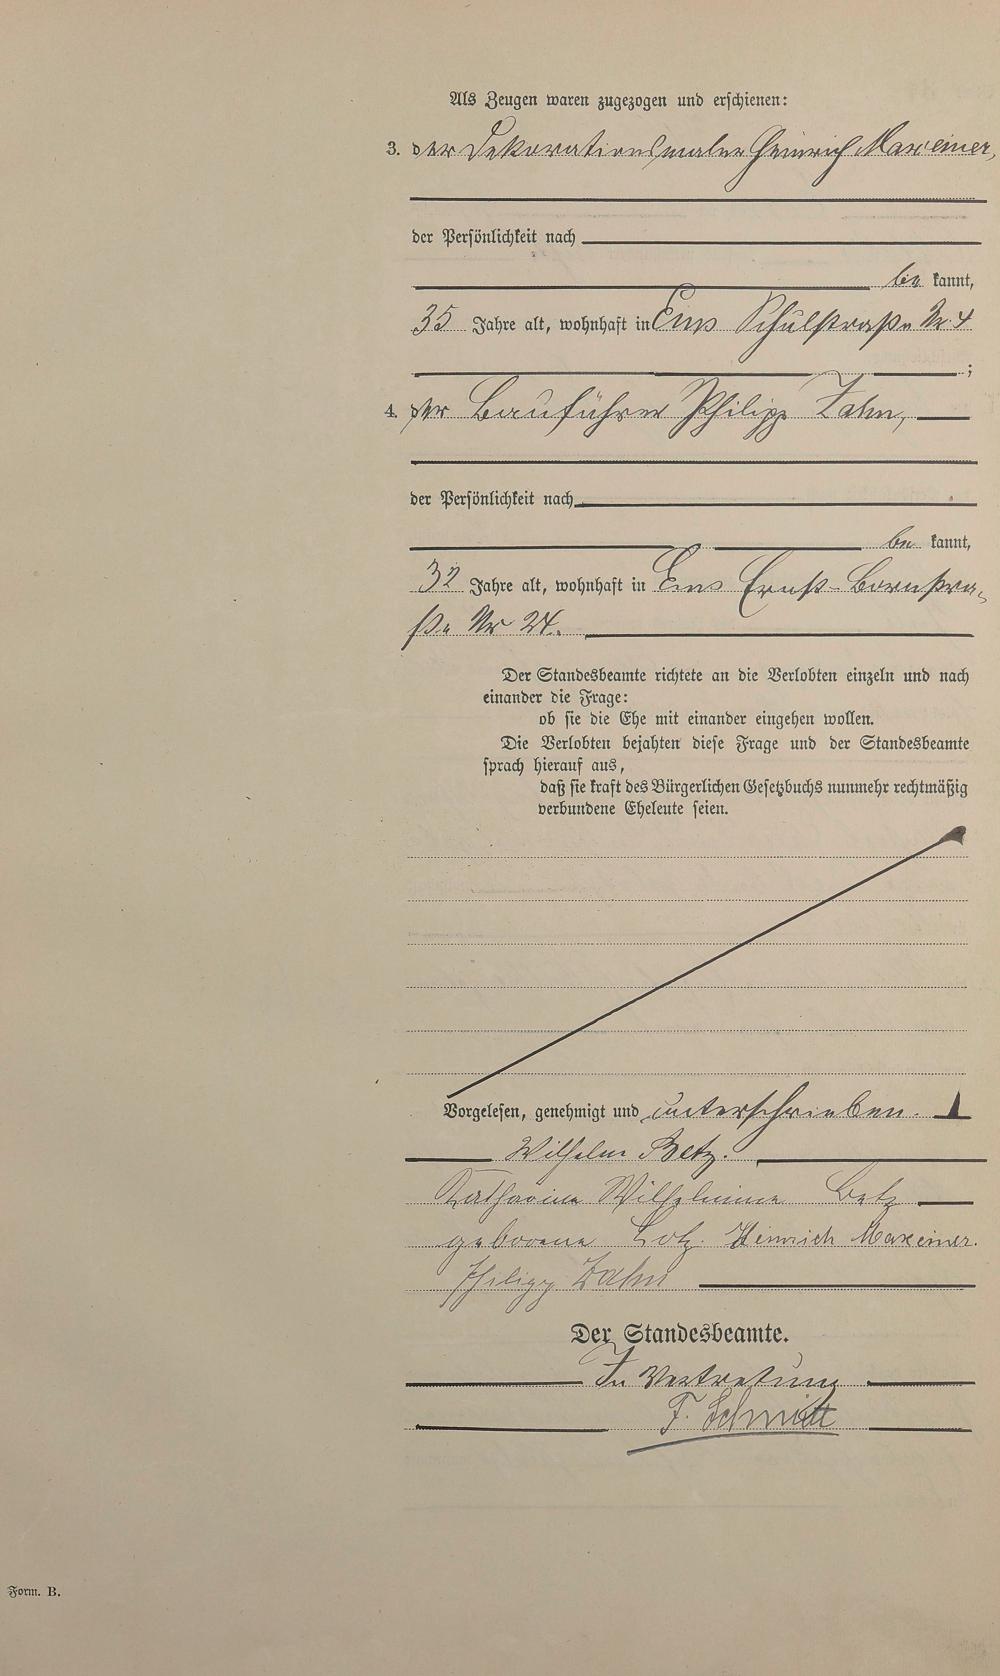 Als Zeugen waren zugezogen und erschienen:
3. der Dekorationsmaler Heinrich Maxeiner,
der Persönlichkeit nach
be kannt,
35 Jahre alt, wohnhaft in Ems Schulstraße Nr. 4
;
4. der Bauführer Philipp Zahn,
der Persönlichkeit nach
be kannt,
32 Jahre alt, wohnhaft in Ems Ernst-Bornstra-
ße Nr 24.
Der Standesbeamte richtete an die Verlobten einzeln und nach
einander die Frage:
ob sie die Ehe mit einander eingehen wollen.
Die Verlobten bejahten diese Frage und der Standesbeamte
sprach hierauf aus,
daß sie kraft des Bürgerlichen Gesetzbuchs nunmehr rechtmäßig
verbundene Eheleute seien.
Vorgelesen, genehmigt und unterschrieben.
Wilhelm Betz.
Katharina Wilhelmine Betz
geborene Lotz. Heinrich Maxeiner.
Philipp Zahn
Der Standesbeamte.
In Vertretung
F. Schmitt
Form. B.